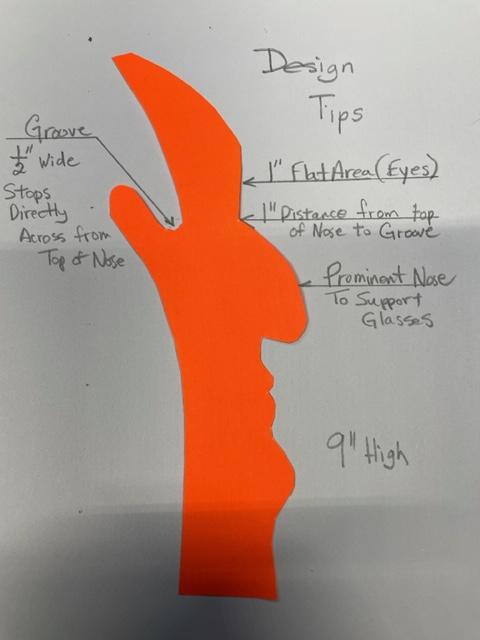 Design
Tips
Groove
1/2" Wide
Stops
Directly
Across from
Top of Nose
1" Flat Area (Eyes)
1" Distance from top
of Nose to Groove
Prominent Nose
To Support
Glasses
9" High